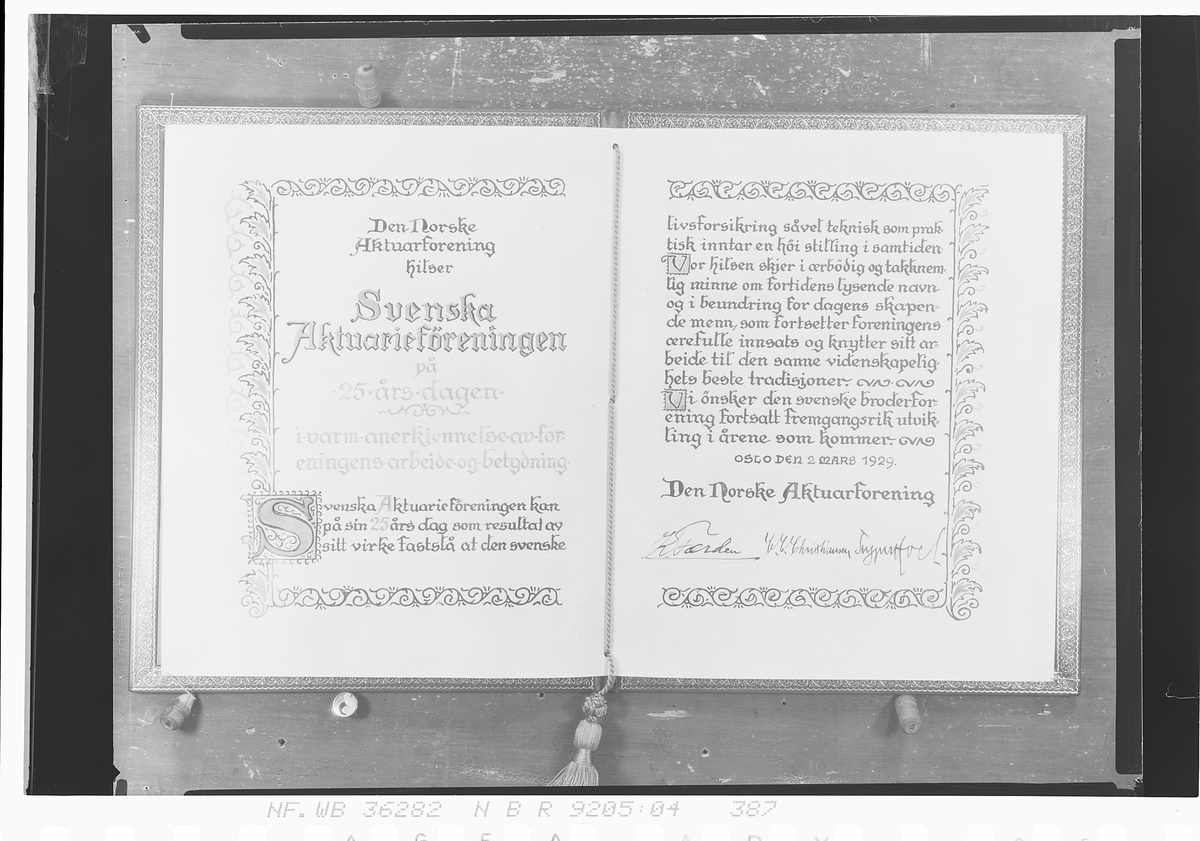 Den Norske
Aktuarforening
hilser
Svenska
Aktuarieföreningen
på
·25·års·dagen·
i·varm·anerkjennelse·av·för-
eningens·arbeide·og·betydning·
Svenska Aktuarieföreningen kan
på sin 25 års dag som resultat av
sitt virke fastslå at den svenske
livsforsikring såvel teknisk som prak-
tisk inntar en höi stilling i samtiden
Vor hilsen skjer i ærbödig og takknem-
lig minne om fortidens lysende navn
og i beundring for dagens skapen-
de menn, som fortsetter foreningens
ærefulle innsats og knytter sitt ar-
beide til den sanne videnskapelig-
hets beste tradisjoner.
Vi önsker den svenske broderfor-
ening fortsatt fremgangsrik utvik-
ling i årene som kommer.
OSLO DEN 2 MARS 1929.
Den Norske Aktuarforening
C. C. Christiansen
NF. WB 36282 N B R 9205:04 387